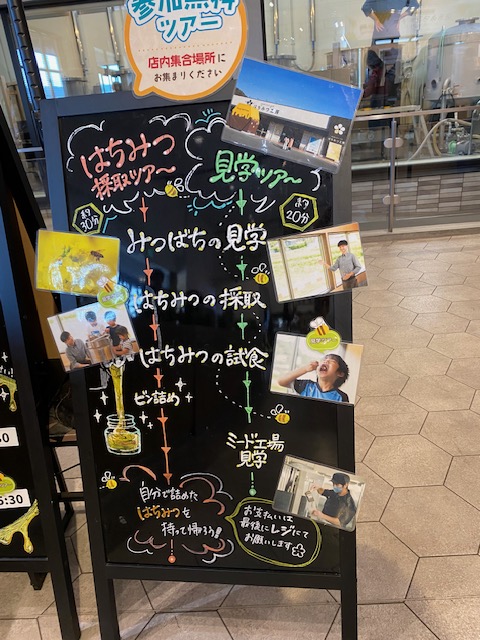 参加無料
ツアー
店内集合場所に
お集まりください
はちみつ
採取ツアー
見学ツアー
約30分
約20分
みつばちの見学
はちみつの採取
はちみつの試食
ビン詰め
ミード工場
見学
自分で詰めた
はちみつを
持って帰ろう!
お支払いは
最後にレジにて
お願いします